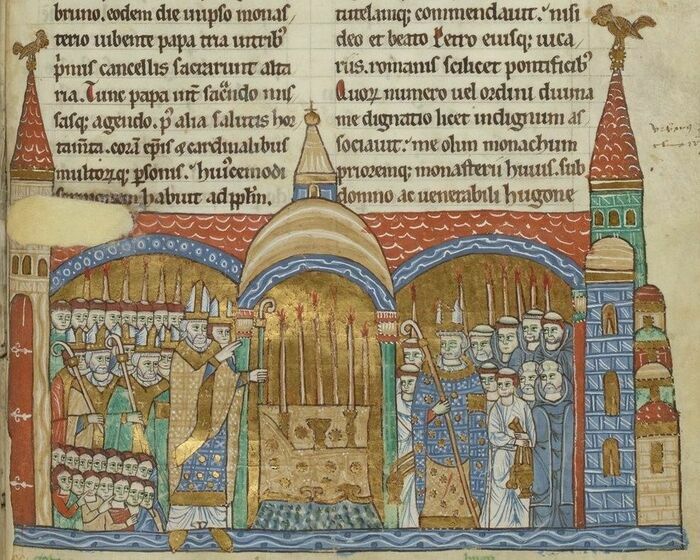 bruno. eodem die in ipso monas
terio iubente papa tria in tribꝰ
p̄mis cancellis sacrarunt alta
ria. Tunc papa int̄ sac̄ndo mis
sasq; agendo. p᷒ alia salutis hor
tam̄ta. corā ep̄is & cardinalibus
multorq; p̱sonis. huꝰcemodi
sermonem habuit ad pp̄lm.
tutelamq; commendauit. nisi
deo et beato Petro eiusq; uica
riis. romanis scilicet pontificibꝰ
Quoꝝ numero uel ordini diuina
me dignatio licet indignum as
sociauit. me olim monachum
prioremq; monasterii huius. sub
domno ac uenerabili hugone